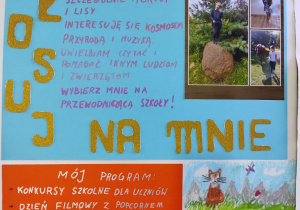 I LISY
INTERESUJĘ SIĘ KOSMOSEM,
PRZYRODĄ I MUZYKĄ
UWIELBIAM CZYTAĆ I
POMAGAĆ INNYM LUDZIOM
I ZWIERZĘTOM
WYBIERZ MNIE NA
PRZEWODNICZĄCĄ SZKOŁY!
OSUJ
NA MNIE
MÓJ PROGRAM:
- KONKURSY SZKOLNE DLA UCZNIÓW
- DZIEŃ FILMOWY Z POPCORNEM